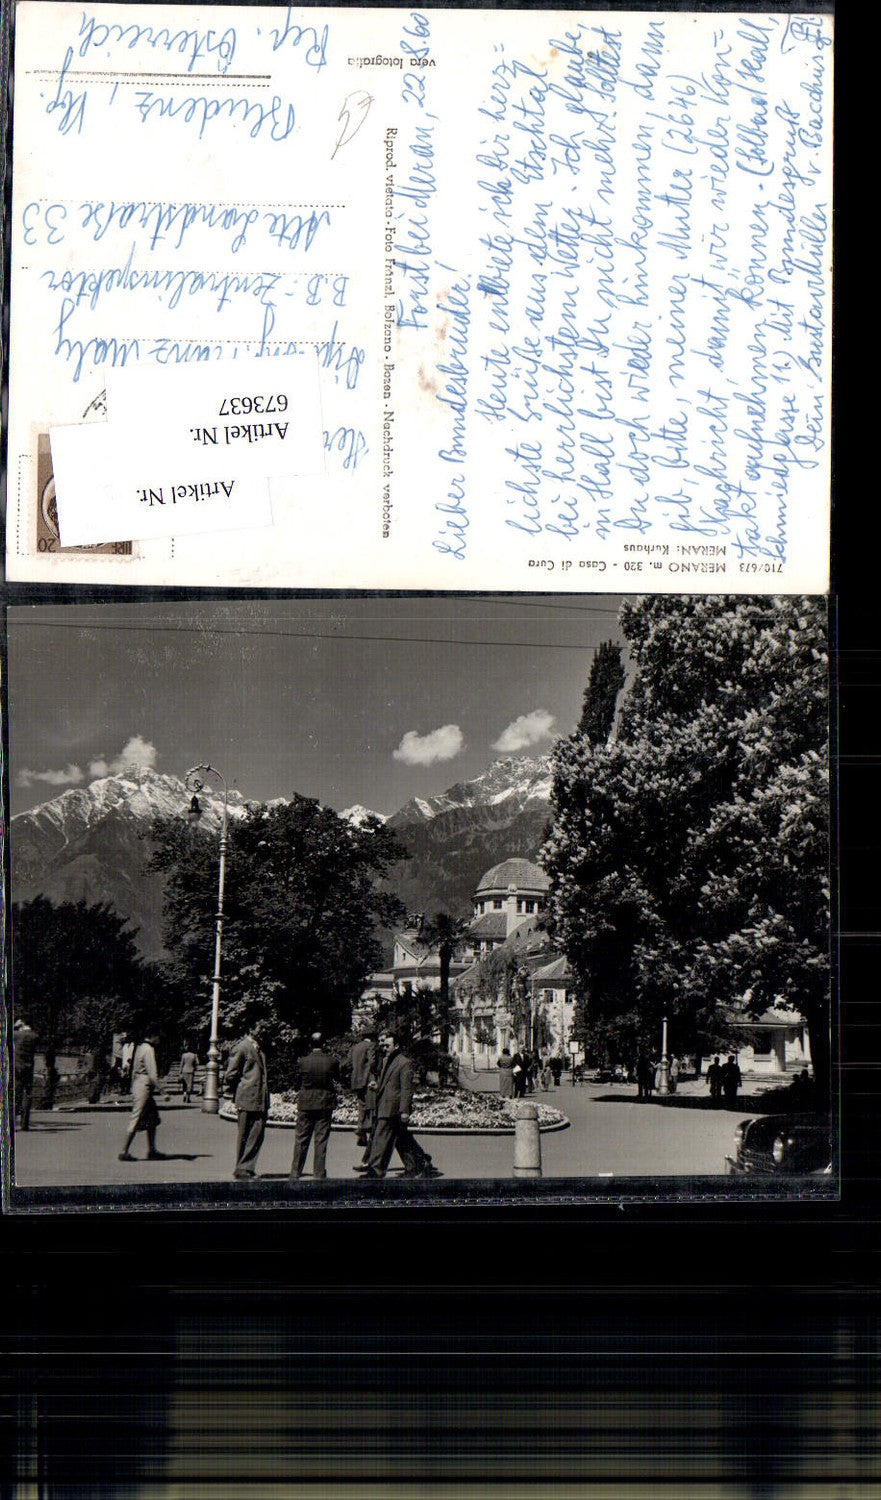 710/673 MERANO m. 320 - Casa di Cura
MERAN: Kurhaus
Forst bei Meran, 22.8.60
Lieber Bundesbruder!
Heute entbiete ich Dir herz=
lichste Grüße aus dem Etschtal
bei herrlichstem Wetter. Ich glaube,
in Hall bist Du nicht mehr. Solltest
Du doch wieder hinkommen, dann
gib, bitte, meiner Mutter (2646)
Nachricht, damit wir wieder Kon=
takt aufnehmen können. - (Solbad Hall,
Schmiedgasse 11.) Mit Bundesgruß
Dein Gustav Müller v. Bacchus
Riprod. vietata - Foto Fränzl, Bolzano - Bozen - Nachdruck verboten
vera fotografia
Herr
Dipl.-Ing. Franz Maly
B.B.-Zentralinspektor
Alte Landstraße 33
Bludenz, Vbg.
Rep. Österreich
20
Artikel Nr.
Artikel Nr.
673637